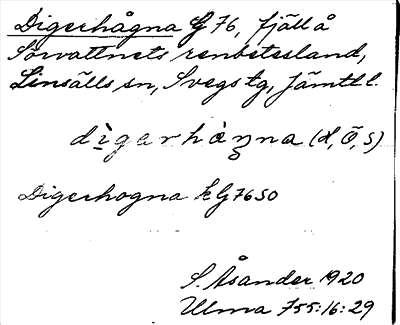 Digerhågna G 76, fjäll å
Sörvattnets renbetesland,
Linsälls sn, Svegs tg, Jämtl l.
dìgarhàŋna (H, Ö, S)
Digerhogna k G 76 SO
S. Åsander 1920
Ulma 755:16:29